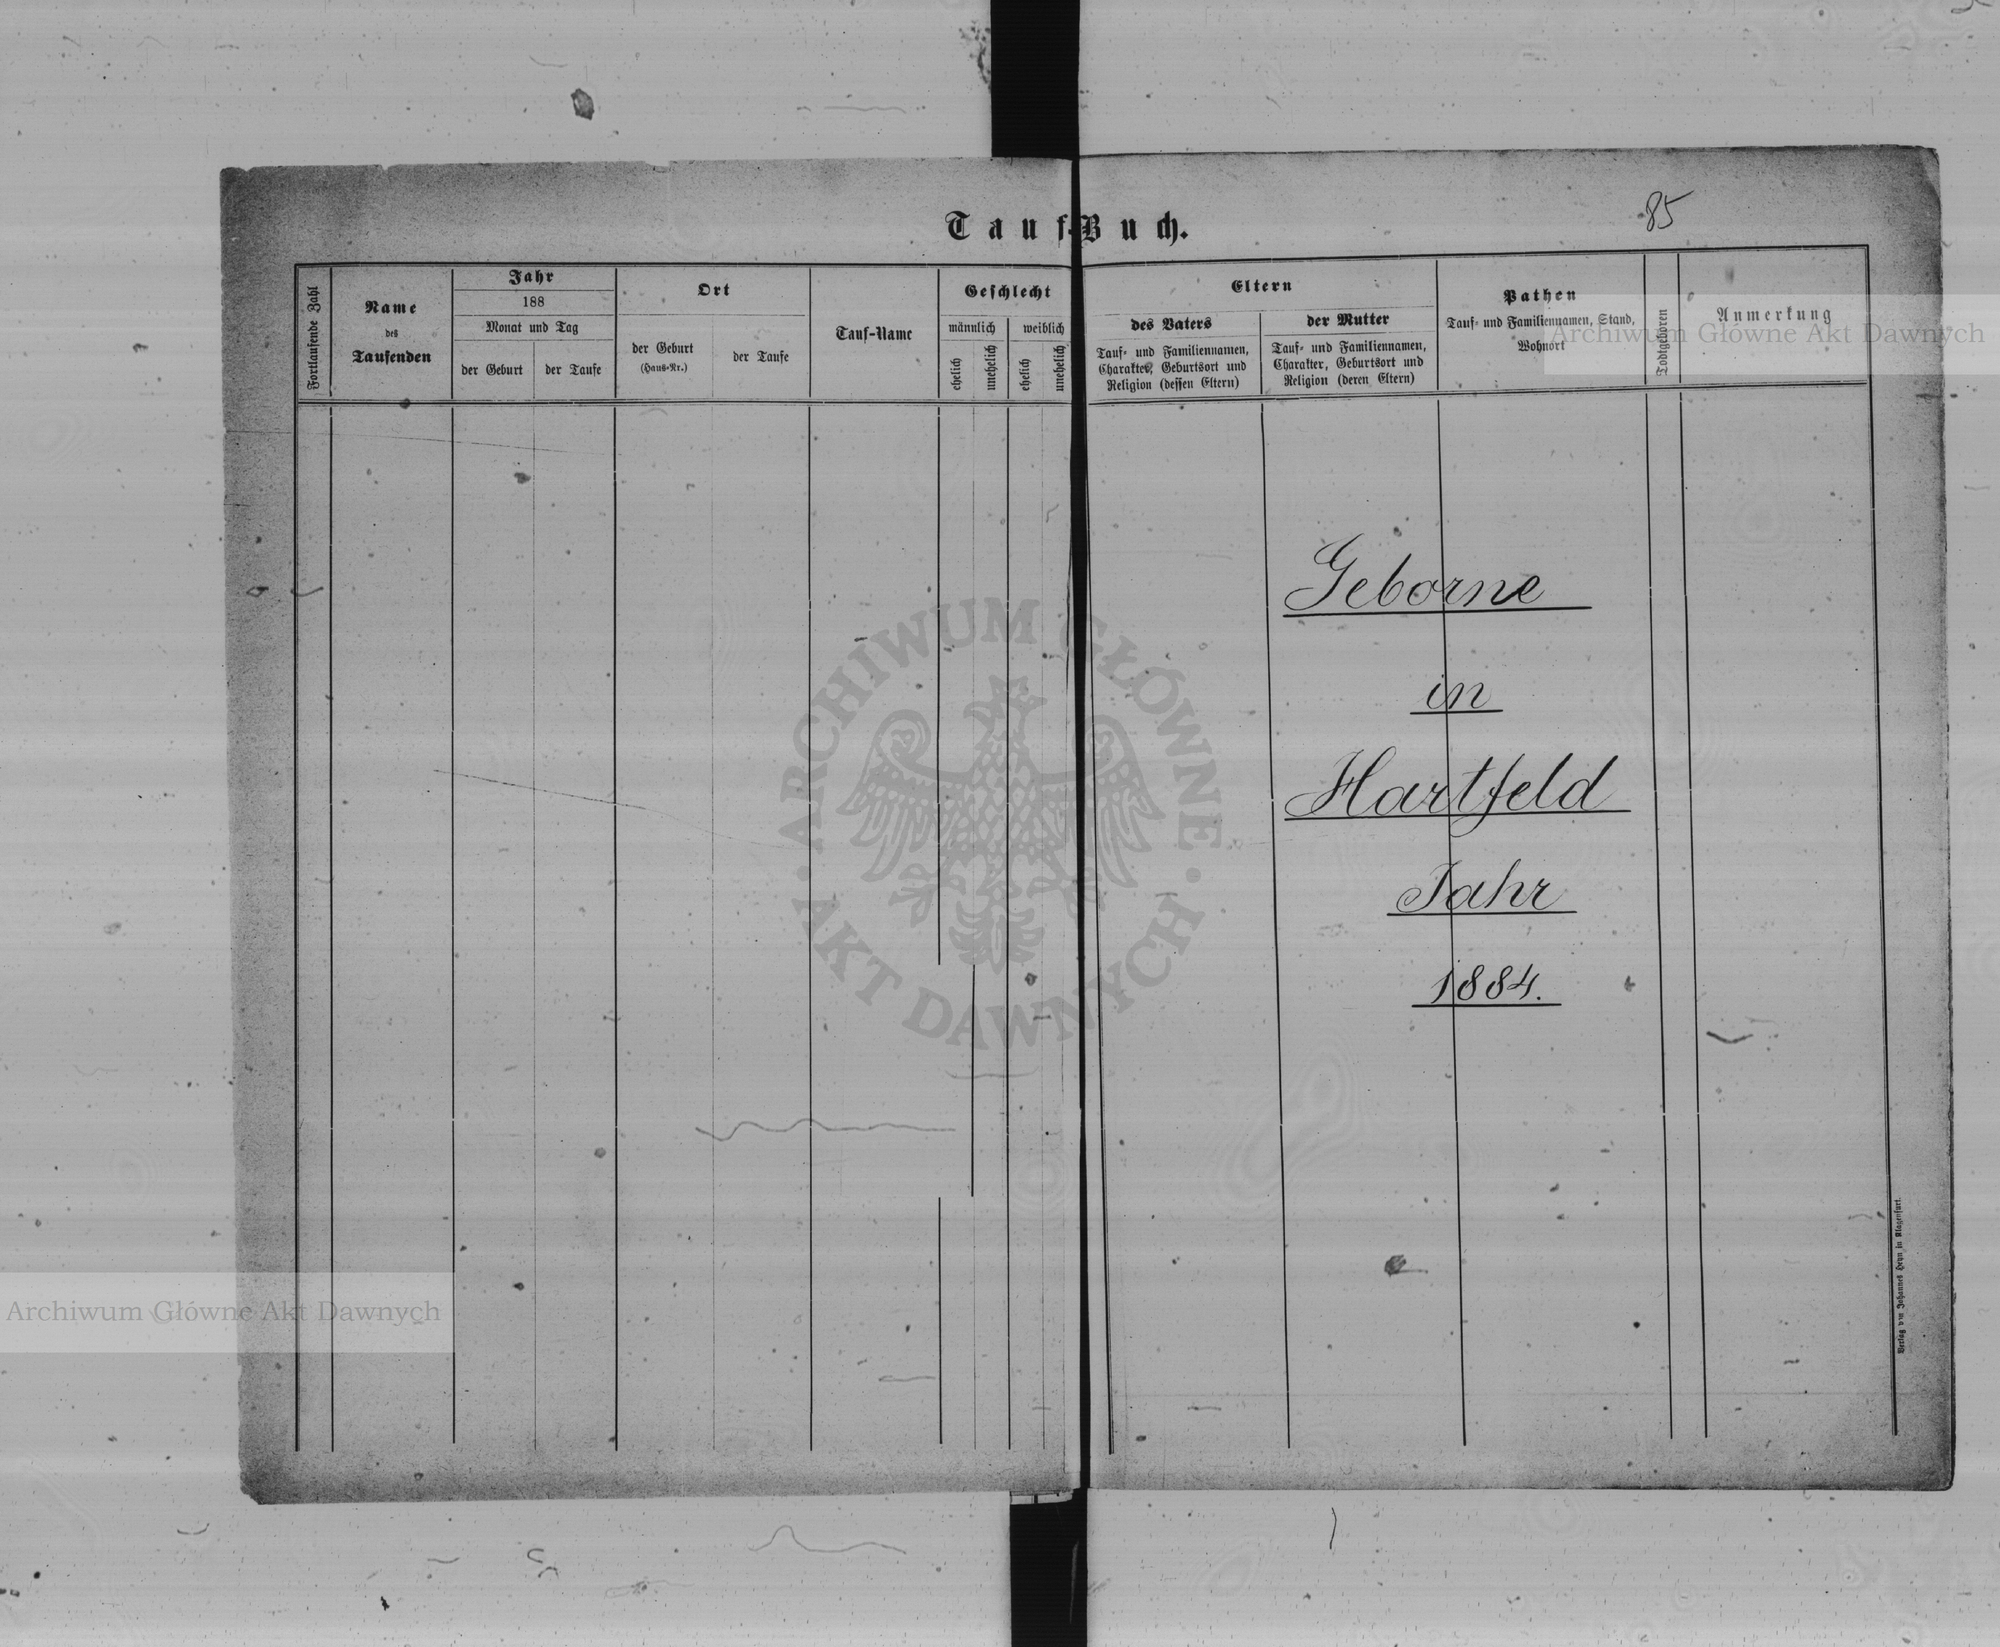 85
Tauf-Buch.
Fortlaufende Zahl
Name
des
Taufenden
Jahr
188
Monat und Tag
der Geburt
der Taufe
Ort
der Geburt
(Haus-Nr.)
der Taufe
Tauf-Name
Geschlecht
männlich
weiblich
ehelich
unehelich
ehelich
unehelich
Eltern
des Vaters
Tauf- und Familiennamen,
Charakter, Geburtsort und
Religion (dessen Eltern)
der Mutter
Tauf- und Familiennamen,
Charakter, Geburtsort und
Religion (deren Eltern)
Pathen
Tauf- und Familiennamen, Stand,
Wohnort
Todtgeboren
Anmerkung
Archiwum Główne Akt Dawnych
Geborne
in
Hartfeld
Jahr
1884.
ARCHIWUM GŁÓWNE
AKT DAWNYCH
Archiwum Główne Akt Dawnych
Verlag von Johannes Heyn in Klagenfurt.